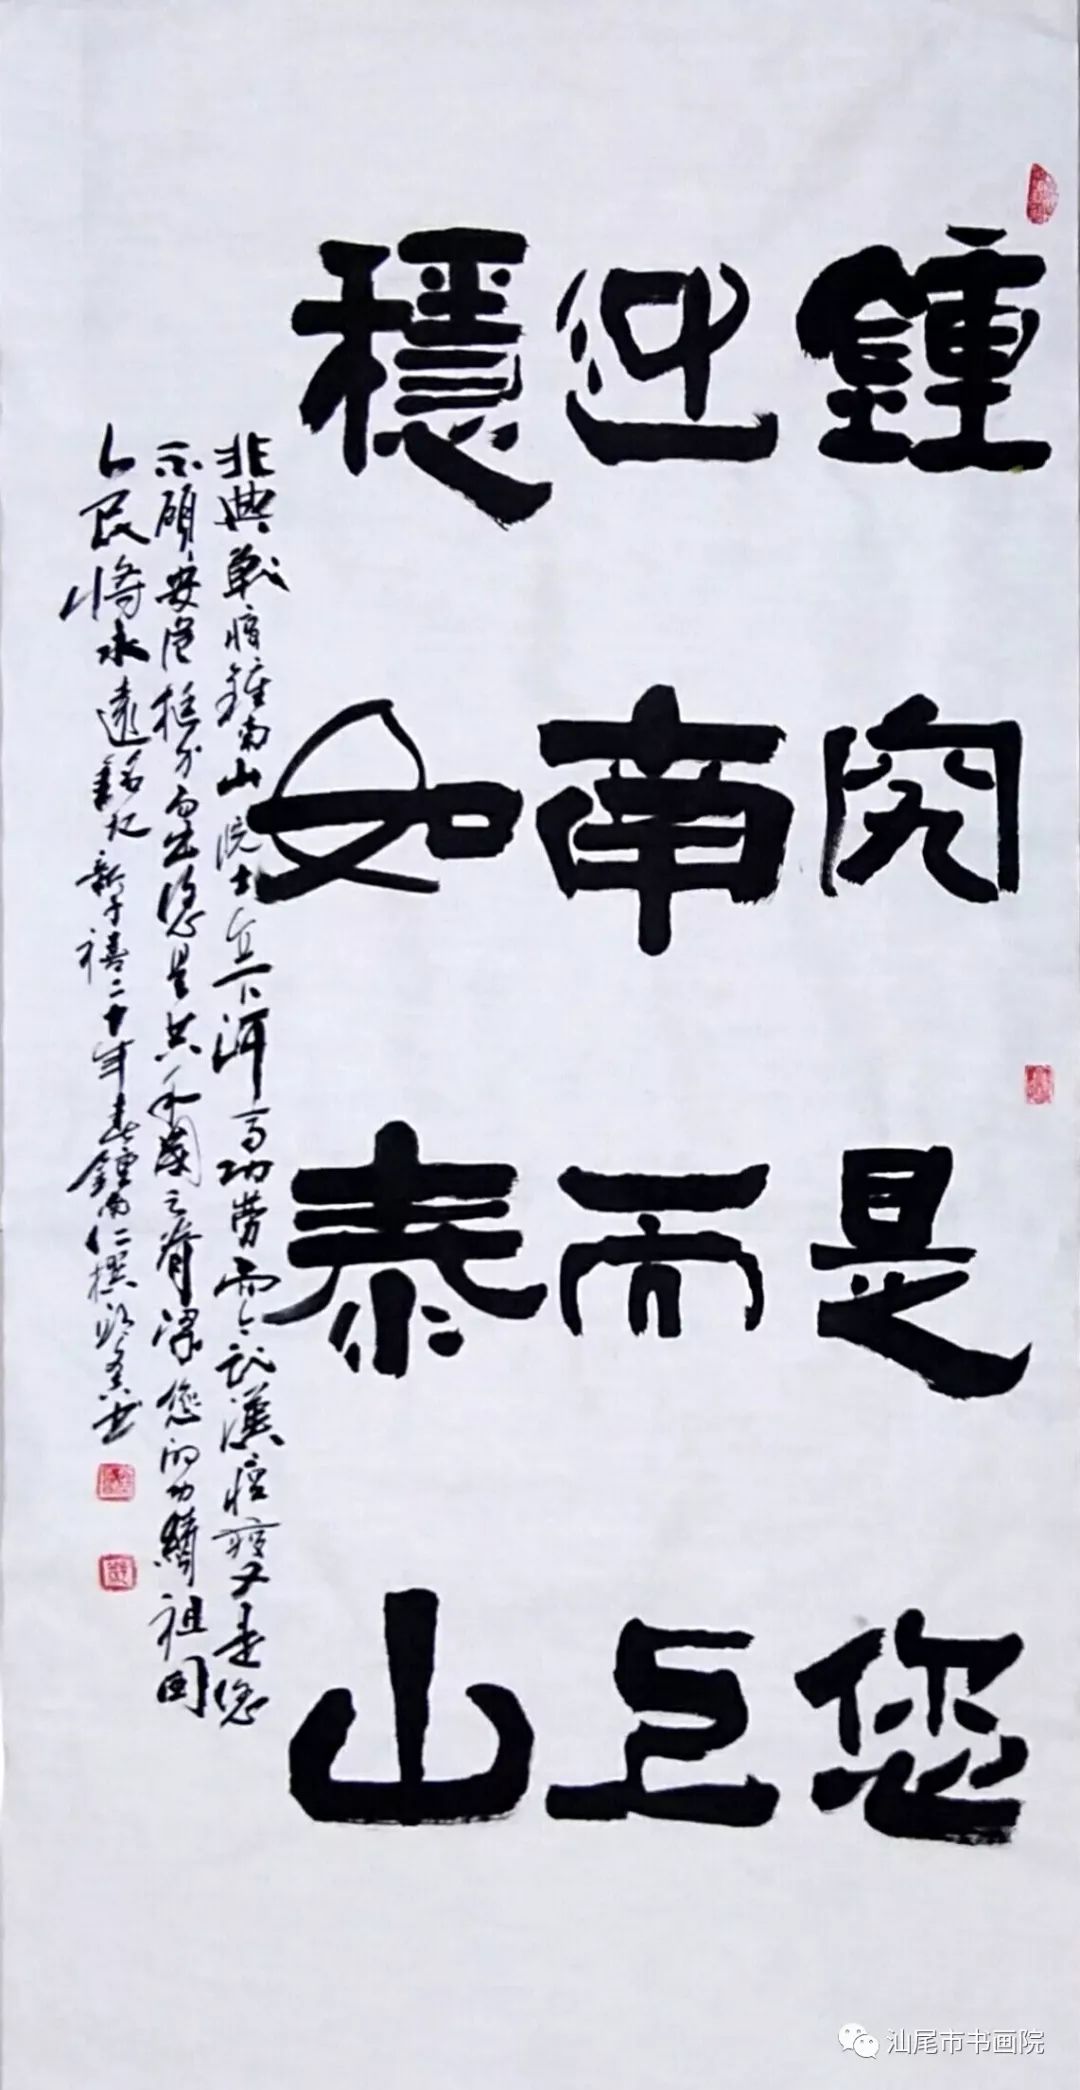 鍾究是您
迎南而上
穩如泰山
非典戰疫鍾南山院士立下汗馬功勞而今武漢疫又是您
不顧安危挺身而出您是共和國之脊梁您的功績祖國
人民將永遠銘記新千禧二十年春鍾南仁撰
汕尾市书画院